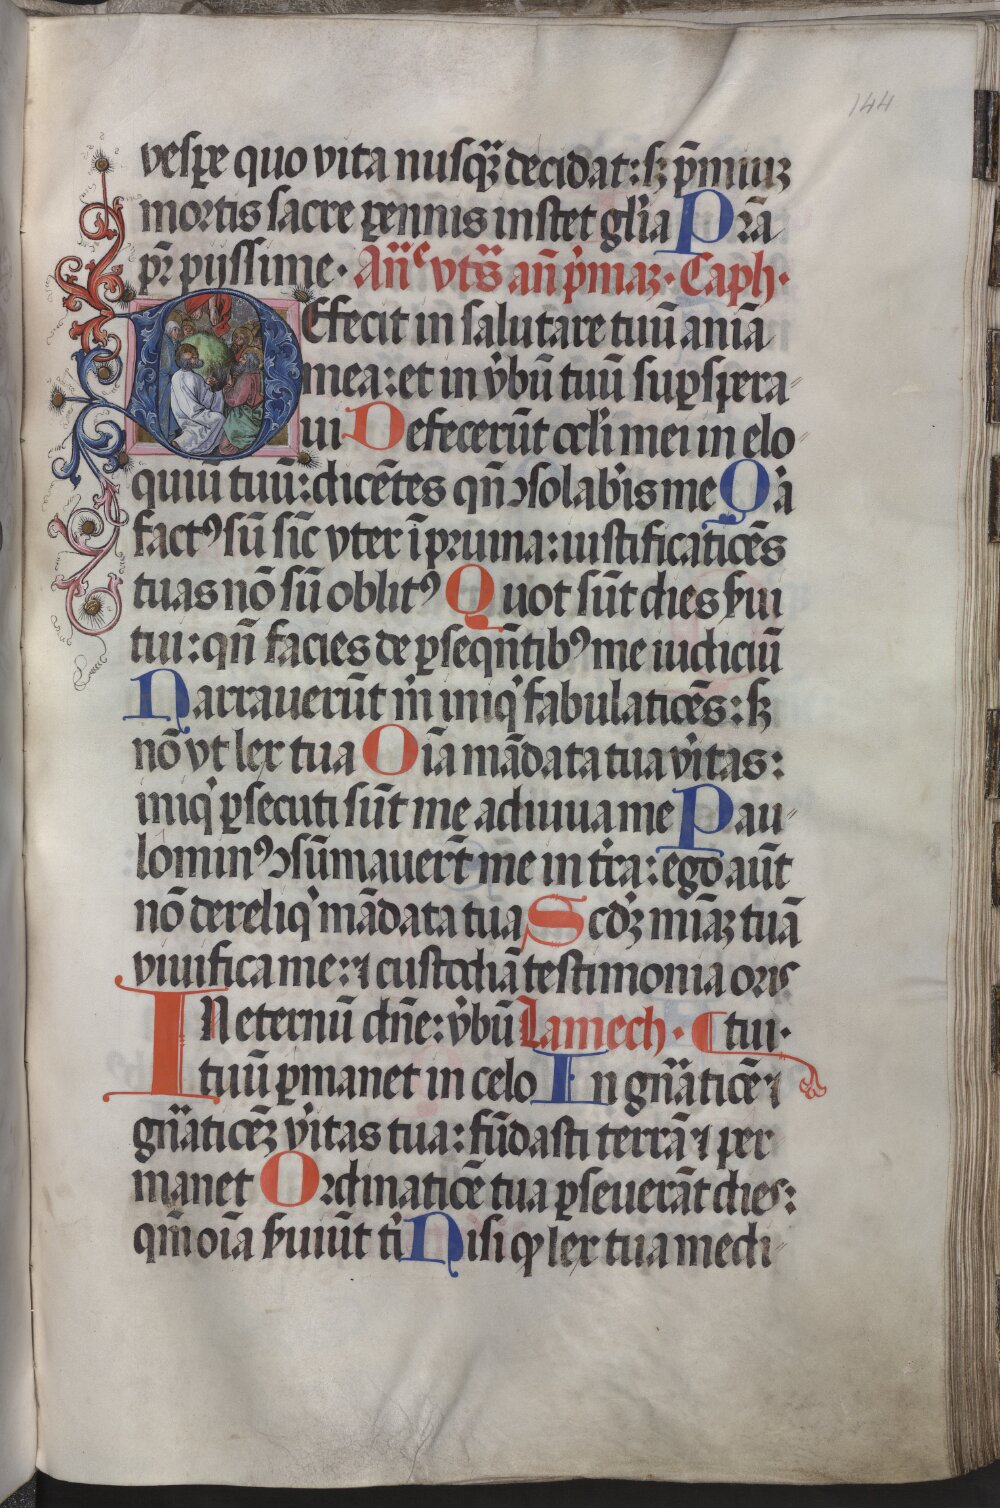 144
vesꝑe quo vita nusqᷓ decidat: sꝫ p̄miuꝫ
mortis sacre ꝑennis instet gl̓ia Pr̄a
pr̄ pijssime· An̄ᵉ vts̄ an̄ p̓maꝫ· Caph·
DEfecit in salutare tuū aniā
mea: et in v̓bū tuū suꝑspera
ui Defecerūt ocl̓i mei in elo
quiū tuū: dicētes qn̄ ꝯsolab̓is me Q̓a
factꝰ sū sic̄ vter ī pruina: iustificatiōēs
tuas nō sū oblitꝰ Quot sūt dies s̓ui
tui: qn̄ facies de ꝑseqn̄tibꝰ me iudiciū
Narrauerūt m̓ iniq̓ fabulatiōēs: sꝫ
nō vt lex tua Oīa mādata tua v̓itas:
iniq̓ ꝑsecuti sūt me adiuua me Pau
lominꝰ ꝯsūmauer̄t me in t̓ra: ego aūt
nō dereliq̓ mādata tua Scd̓ꝫ mīaꝫ tuā
viuifica me: ⁊ custodiā testimonia oris
IN eternū dn̄e: v̓bū Lamech· ¶ tui·
tuū ꝑmanet in celo In gn̄atiōē ⁊
gn̄atiōēꝫ v̓itas tua: fūdasti terrā ⁊ per
manet Ordinatiōē tua ꝑseuerāt dies:
qm̄ oīa s̓uiūt ti̓ Nisi ꝙ lex tua medi